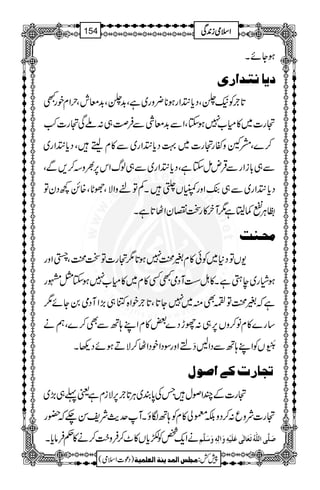 اسلامی زندگی
154
ہوجائے۔
دیانتداری
تاجر کو نیک چلن، دیانتدار ہونا ضروری ہے، بدچلن، بدمعاش، حرام خور کبھی
تجارت میں کامیاب نہیں ہوسکتا، اسے بدمعاشی سے فرصت ہی نہ ملے گی تجارت کب
کرے۔ مشرکین و کفار تجارت میں بہت دیانتداری سے کام لیتے ہیں۔ دیانتداری
سے ہی بازار سے قرض مل سکتا ہے، دیانتداری سے ہی لوگ اس پر بھروسہ کریں گے،
دیانتداری سے ہی بنک اور کمپنیاں چلتی ہیں۔ کم تولنے والا، جھوٹا، خائن کچھ دن تو
بظاہر نفع کما لیتا ہے مگر آخر کار سخت نقصان اٹھاتا ہے۔
محنت
یوں تو دنیا میں کوئی کام بغیر محنت نہیں ہوتا مگر تجارت سخت محنت، چستی اور
ہوشیاری چاہتی ہے۔ کاہل سست آدمی کبھی کسی کام میں کامیاب نہیں ہوسکتا مثل مشہور
ہے کہ بغیر محنت تو لقمہ بھی منہ میں نہیں جاتا، تاجر خواہ کتنا ہی بڑا آدمی بن جائے مگر
سارے کام نوکروں پر ہی نہ چھوڑ دے بعض کام اپنے ہاتھ سے بھی کرے، ہم نے
بنیوں کو اپنے ہاتھ سے دالیں دَلتے اور سودا خود اٹھا کر لاتے ہوئے دیکھا۔
تجارت کے اصول
تجارت کے چند اصول ہیں جس کی پابندی ہر تاجر پر لازم ہے یعنی پہلے ہی بڑی
تجارت شروع نہ کردو بلکہ معمولی کام کو ہاتھ لگاؤ۔ آپ حدیث شریف سن چکے کہ حضور
صَلَّی اللہُ تَعَالٰی عَلَیْہِ وَاٰلِہٖ وَسَلَّم نے ایک شخص کو لکڑیاں کاٹ کر فروخت کرنے کا حکم فرمایا۔
پیش کش: مجلس المدینۃ العلمیۃ (دعوتِ اسلامی)